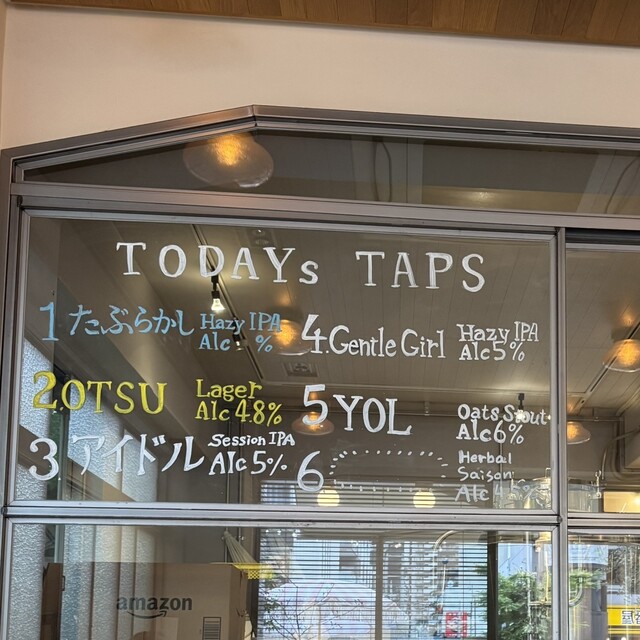 TODAYs TAPS
1 たぶらかし Hazy IPA
Alc %
2.OTSU Lager
Alc 4.8%
3 アイドル Session IPA
Alc 5%
4.Gentle Girl Hazy IPA
Alc 5%
5 YOL Oats Stout
Alc 6%
6 Herbal
Saison
Alc
amazon